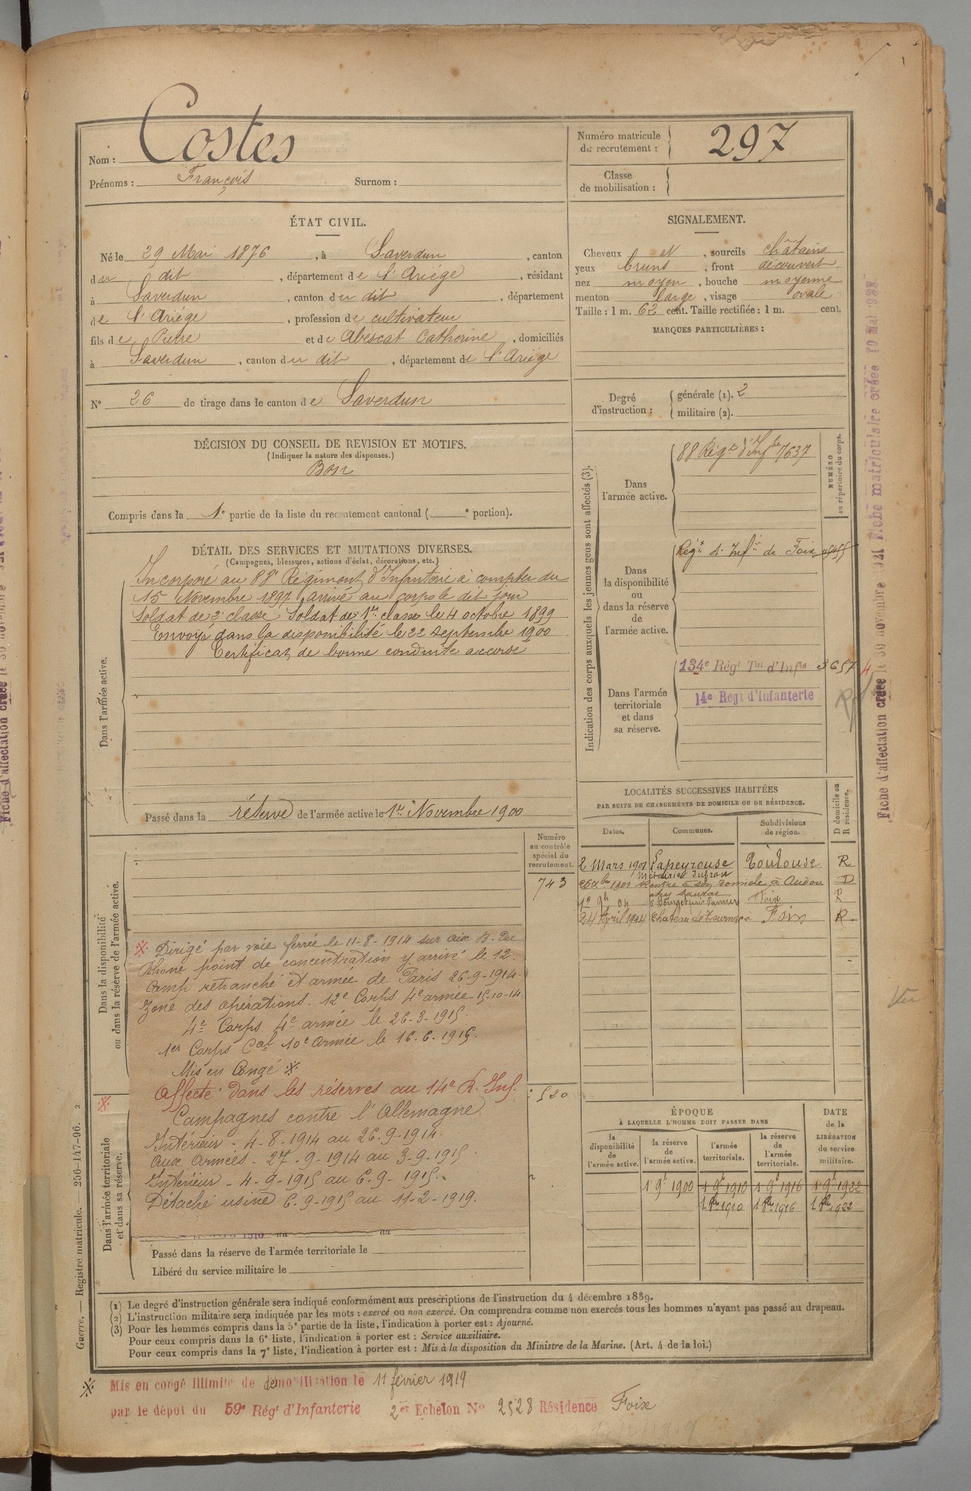 Nom : Costes
Prénoms : François Surnom :
Numéro matricule
du recrutement : 297
Classe
de mobilisation :
ÉTAT CIVIL.
Né le 29 Mai 1876, à Saverdun, canton
du dit, département de l'Ariège, résidant
à Saverdun, canton du dit, département
de l'Ariège, profession de cultivateur
fils de Pierre et de Abescat Catherine, domiciliés
à Saverdun, canton du dit, département de l'Ariège
N° 26 de tirage dans le canton de Saverdun
SIGNALEMENT.
Cheveux et, sourcils châtains
yeux bruns, front découvert
nez moyen, bouche moyenne
menton large, visage ovale
Taille : 1 m. 62 cent. Taille rectifiée : 1 m. cent.
MARQUES PARTICULIÈRES :
Degré
d'instruction :
générale (1). 2
militaire (2).
DÉCISION DU CONSEIL DE REVISION ET MOTIFS.
(Indiquer la nature des dispenses.)
Bon
Compris dans la 1e partie de la liste du recrutement cantonal ( e portion).
DÉTAIL DES SERVICES ET MUTATIONS DIVERSES.
(Campagnes, blessures, actions d'éclat, décorations, etc.)
Dans l'armée active.
Incorporé au 88e Régiment d'Infanterie à compter du
15 Novembre 1897, arrivé au corps le dit jour
Soldat de 2e classe Soldat de 1re classe le 4 octobre 1899
Envoyé dans la disponibilité le 22 Septembre 1900
Certificat de bonne conduite accordé
Passé dans la réserve de l'armée active le 1er Novembre 1900
Indication des corps auxquels les jeunes gens sont affectés (3).
NUMÉRO
au répertoire du corps.
Dans
l'armée active.
88 Régt d'Infie 7637
Dans
la disponibilité
ou
dans la réserve
de
l'armée active.
Régt d'Infie de Foix
Dans l'armée
territoriale
et dans
sa réserve.
134e Régt Tal d'Infie 3657
14e Régt d'Infanterie
LOCALITÉS SUCCESSIVES HABITÉES
PAR SUITE DE CHANGEMENTS DE DOMICILE OU DE RÉSIDENCE.
Dates. Communes. Subdivisions
de région.
D domicile ou
R résidence.
2 Mars 1901 Lapeyrouse Toulouse R
D
Foix R
24 Avril 1904 Foix R
Numéro
au contrôle
spécial du
recrutement.
743
Dans la disponibilité
ou dans la réserve de l'armée active.
Dirigé par voie ferrée le 11-8-1914 sur aix B. du
Rhone point de concentration y arrivé le 12.
Camp retranché et armée de Paris 26-9-1914.
Zone des opérations. 12e Corps 4e armée 15-10-14
4e Corps 4e armée le 26-3-1915
1er Corps Cal 10e armée le 16-6-1915.
Mis en Congé ※
Affecté dans les réserves au 14e R. Inf.
Campagnes contre l'Allemagne
Intérieur - 4-8-1914 au 26-9-1914.
Aux Armées - 27-9-1914 au 3-9-1915.
Intérieur - 4-9-1915 au 6-9-1915.
Détaché usine 6-9-1915 au 11-2-1919.
Dans l'armée territoriale
et dans sa réserve.
Passé dans la réserve de l'armée territoriale le
Libéré du service militaire le
ÉPOQUE
À LAQUELLE L'HOMME DOIT PASSER DANS
DATE
de la
LIBÉRATION
du service
militaire.
la
disponibilité
de
l'armée active.
la réserve
de
l'armée active.
l'armée
territoriale.
la réserve
de
l'armée
territoriale.
1 9e 1900 1 9e 1910 1 9e 1916 1 9e 1922
1 8e 1910 1 8e 1916 1 8e 1922
(1) Le degré d'instruction générale sera indiqué conformément aux prescriptions de l'instruction du 4 décembre 1889.
(2) L'instruction militaire sera indiquée par les mots : exercé ou non exercé. On comprendra comme non exercés tous les hommes n'ayant pas passé au drapeau.
(3) Pour les hommes compris dans la 5e partie de la liste, l'indication à porter est : Ajourné.
Pour ceux compris dans la 6e liste, l'indication à porter est : Service auxiliaire.
Pour ceux compris dans la 7e liste, l'indication à porter est : Mis à la disposition du Ministre de la Marine. (Art. 4 de la loi.)
Guerre. — Registre matricule. 256-147-96.
※ Mis en congé illimité de démobilisation le 11 février 1919
par le dépôt du 59e Régt d'Infanterie 2e Echelon No 2528 Résidence Foix